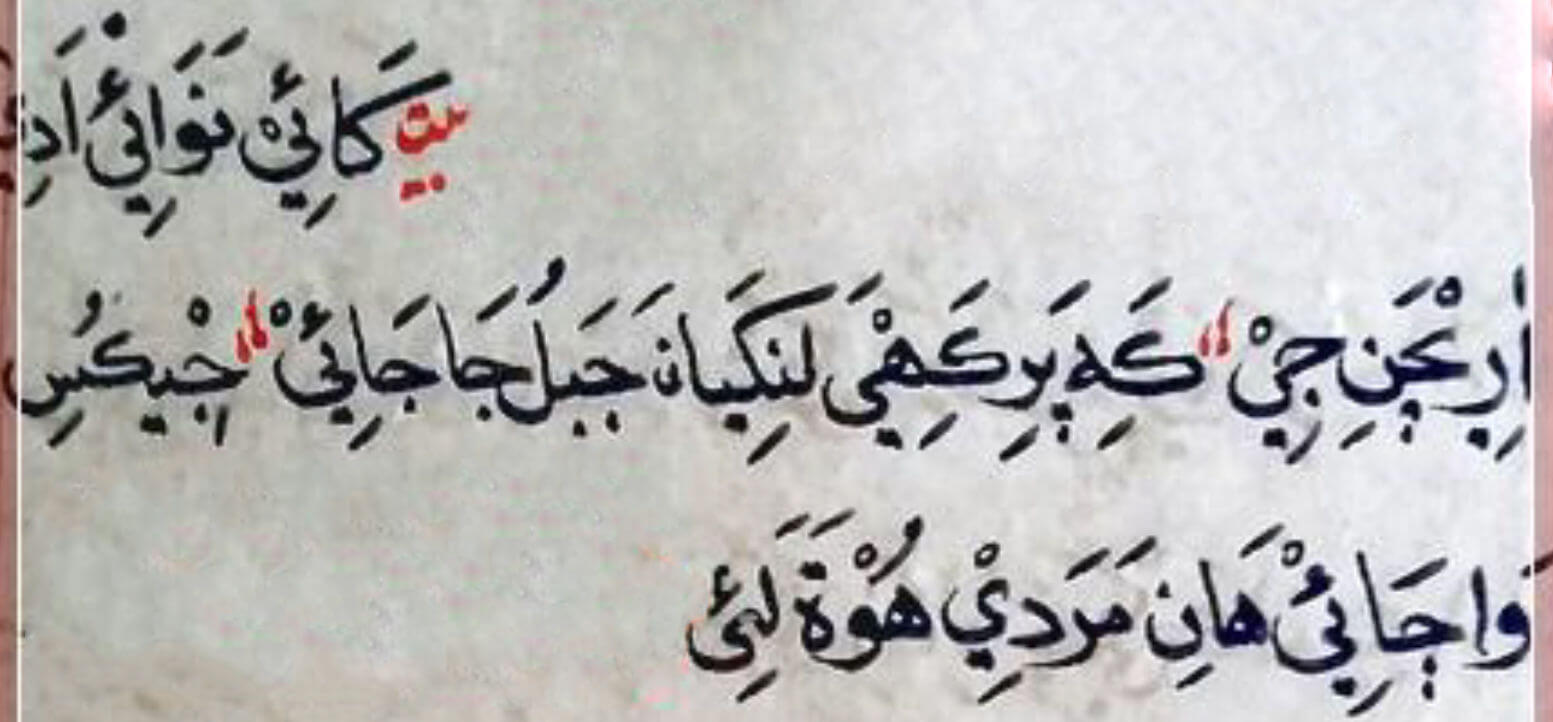 بيت كَائِيْ نَوَائِيْ اَدِ
اَرِ بَچَنِ جِيْ كَهِ پَرِ كَهْيَ لنکِيانَ جَبَلُ جَا جَائِيْ جٖيكُسِ
وَا ڄَائِيْ هَانِ مَرَدِيْ هُوْةَ لَئِي